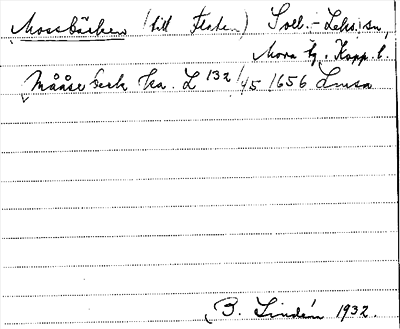 Mossbäcken (till Flaten) Soll.-Leks. sn,
Mora tg. Kopp. l.
Mååsebeck ka. L 132/45 1656 Lmsa
B. Lindén 1932.